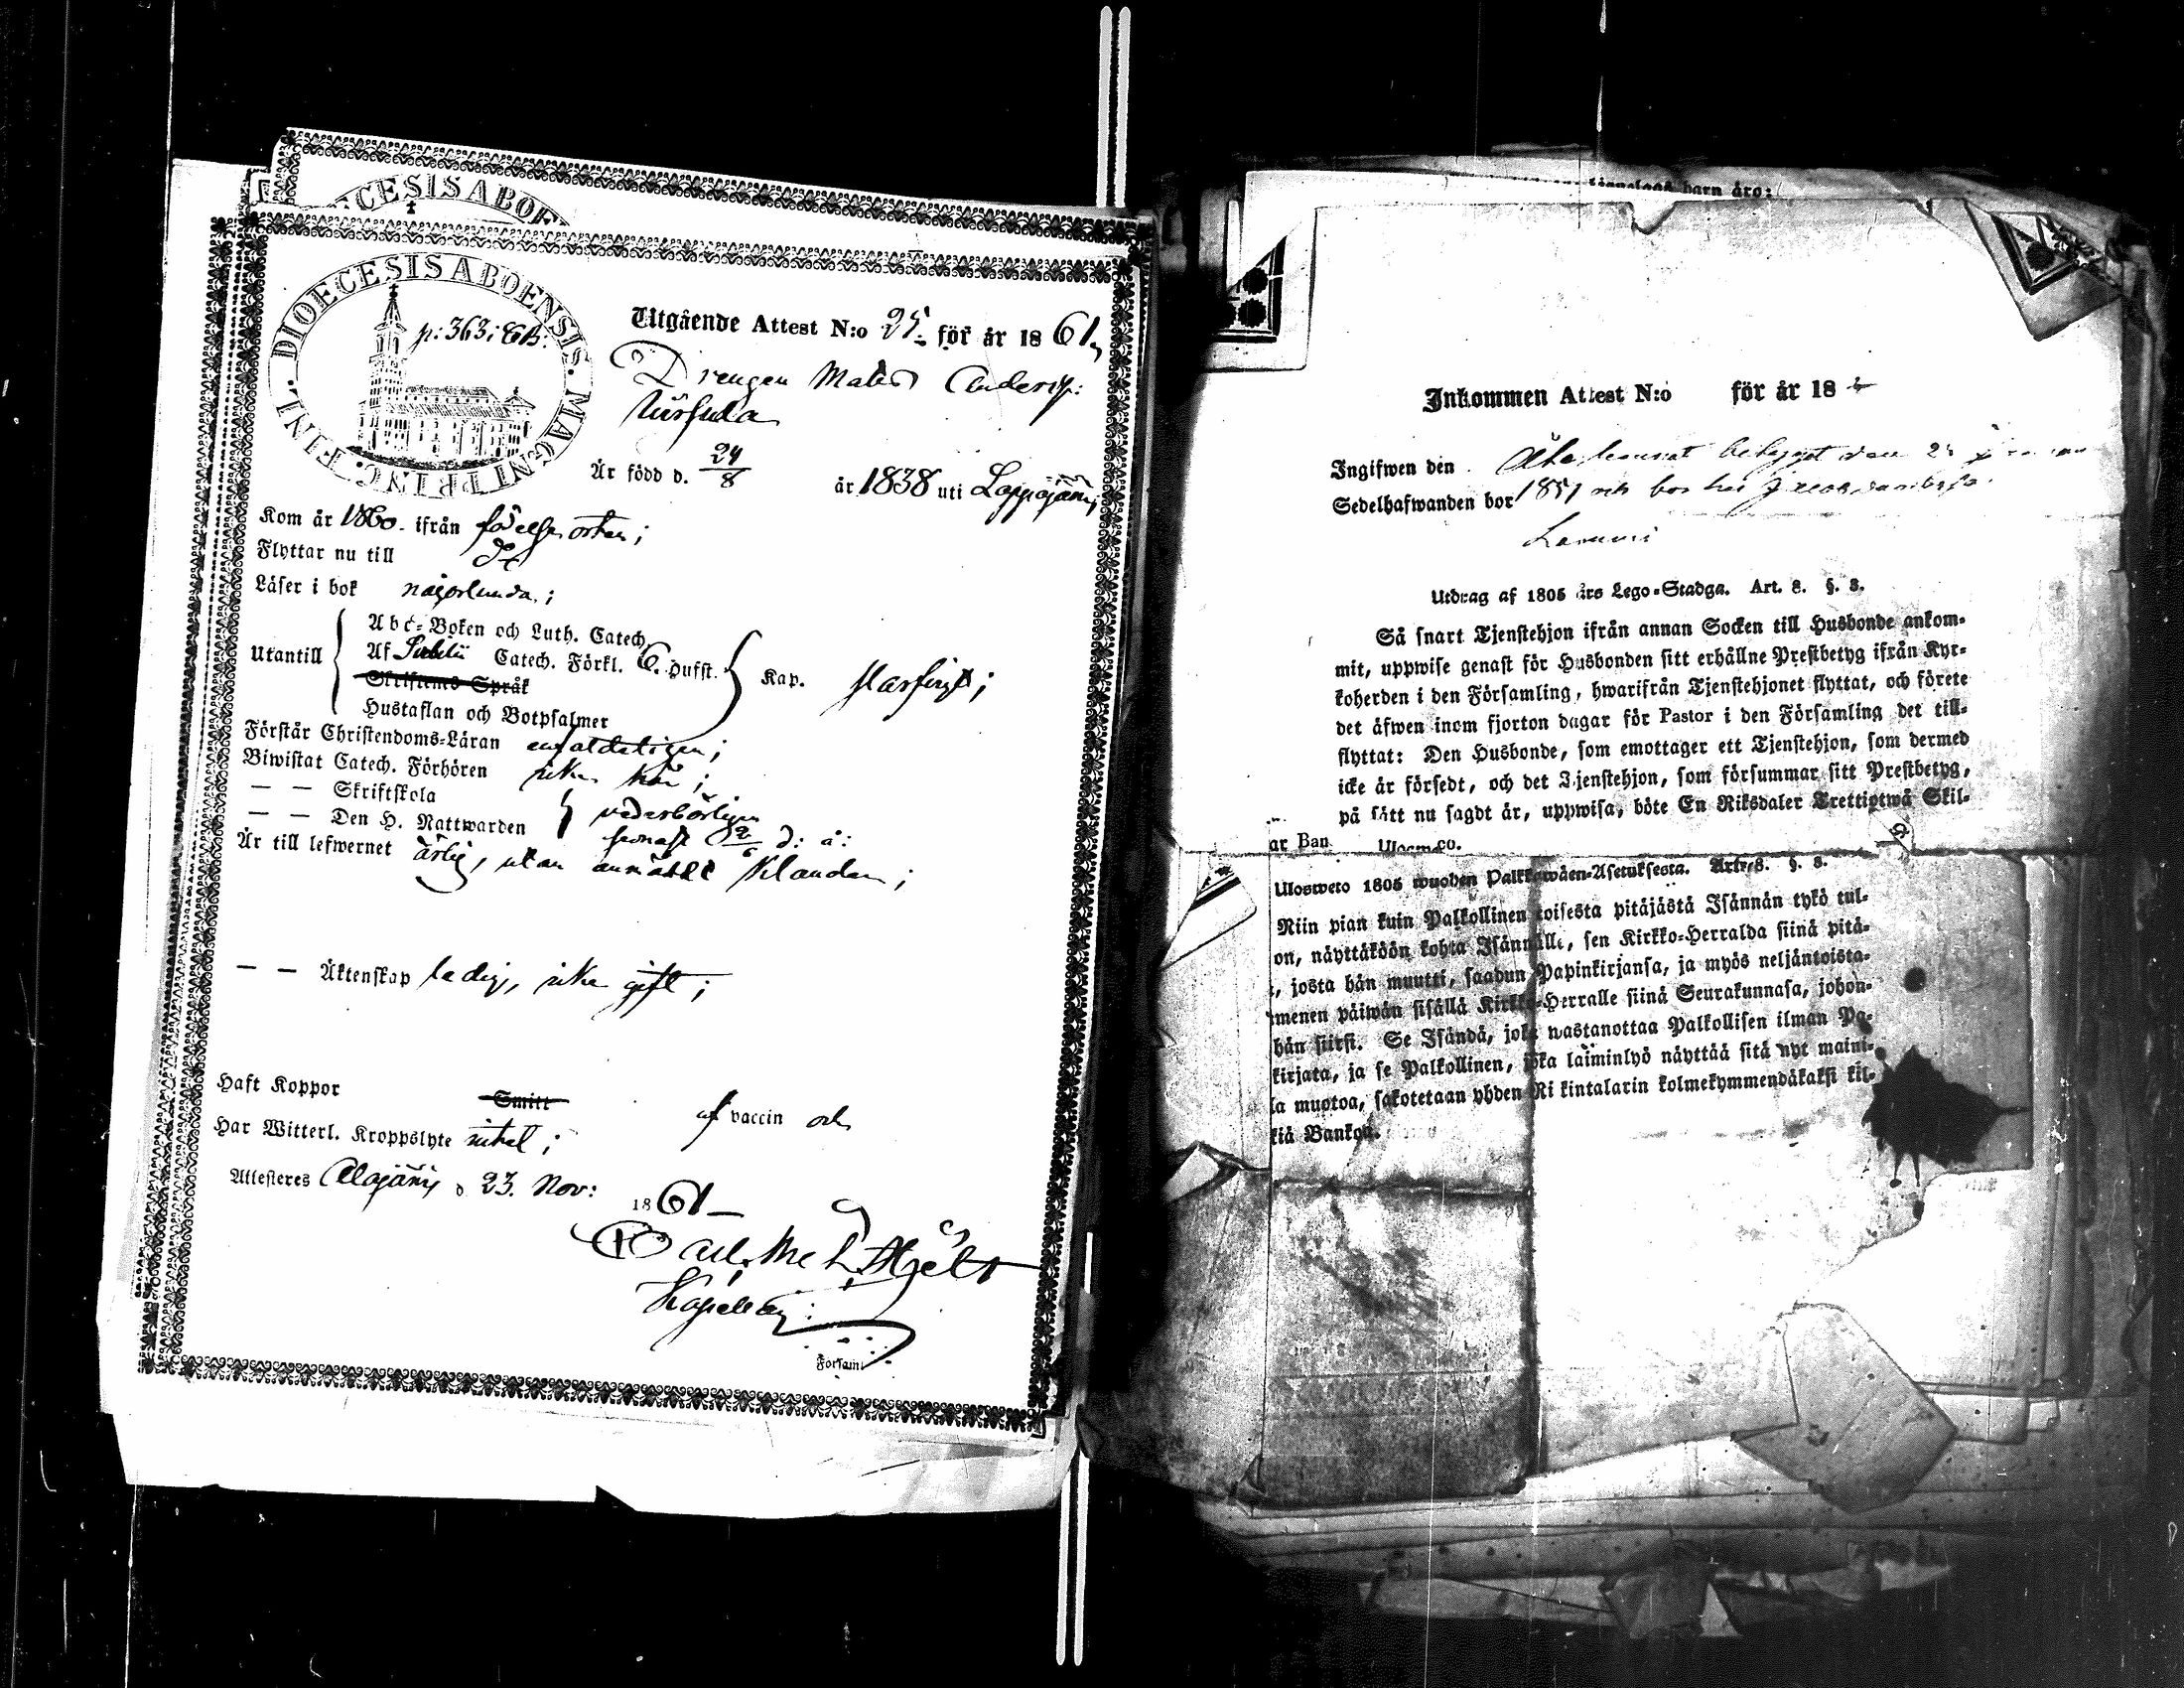 DIOECESIS ABOE
DIOECESIS ABOENSIS. MAGNI PRINC. FINL.
p: 363; CB:
Utgående Attest N:o 25. för år 1861,
Drengen Mats Andersz:
Är född d. 24/8 år 1838 uti Lappajärvi,
Kom år 1860. ifrån födelse orten;
Flyttar nu till
Läser i bok någorlunda;
Utantill
Abc-Boken och Luth. Catech.
Af Catech. Förkl. 6. Hufst. Kap. försvarligt;
Skriftens Språk
Hustaflan och Botpsalmer
Förstår Christendoms-Läran enfaldeligen;
Biwistat Catech. Förhören icke här;
— — Skriftskola
— — Den H. Nattwarden vederbörligen
senast d: å:
Är till lefwernet ärlig, utan anmäldt klander;
— — Äktenskap ledig, icke gift;
Haft Koppor Smitt af vaccin och
Har Witterl. Kroppslyte intet;
Attesteres Alajärvi d. 23. Nov: 1861
Carl
Kapellan
Församl
barn äro:
Inkommen Attest N:o för år 18
Ingifwen den
Sedelhafwanden bor 1851 och bor hos
Utdrag af 1805 års Lego-Stadga. Art. 8. §. 8.
Så snart Tjenstehjon ifrån annan Socken till Husbonde ankom-
mit, uppwise genast för Husbonden sitt erhållne Prestbetyg ifrån Kyr-
koherden i den Församling, hwarifrån Tjenstehjonet flyttat, och förete
det äfwen inom fjorton dagar för Pastor i den Församling det till-
flyttat: Den Husbonde, som emottager ett Tjenstehjon, som dermed
icke är försedt, och det Tjenstehjon, som försummar sitt Prestbetyg,
på sätt nu sagdt är, uppwisa, böte En Riksdaler Trettiotwå Skil-
ar Ban
Ulosweto 1805 wuoden Palkkawäen-Asetuksesta. Art. 8. §. 8.
Niin pian kuin Palkollinen toisesta pitäjästä Isännän tykö tul-
on, näyttäköön kohta Isännälle, sen Kirkko-Herralda siinä pitä-
, josta hän muutti, saadun Papinkirjansa, ja myös neljäntoista-
menen päiwän sisällä Kirkko-Herralle siinä Seurakunnasa, johon-
hän siirsi. Se Isändä, joka wastanottaa Palkollisen ilman Pa-
kirjata, ja se Palkollinen, joka laiminlyö näyttää sitä nyt maini-
la muotoa, sakotetaan yhden Ri kintalarin kolmekymmendäkaksi kil-
kiä Bankoa.